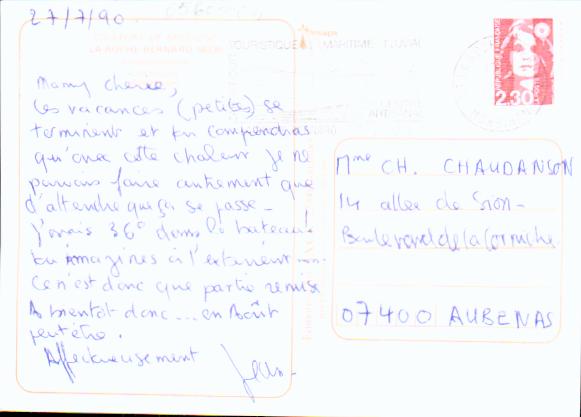 27/7/90
LA ROCHE-BERNARD
TOURISTIQUE MARITIME FLUVIAL
REPUBLIQUE FRANÇAISE
2,30
Mamy Cherie,
Les vacances (petites) se
terminent et tu comprendras
qu'avec cette chaleur je ne
pouvais faire autrement que
d'attendre que ça se passe -
J'avais 36° dans le bateau!
tu imagines à l'extérieur
Ce n'est donc que partie remise
A bientôt donc... en Août
peut être.
Affectueusement
Mme CH. CHAUDANSON
14 allée de Sion -
Boulevard de la Corniche
07400 AUBENAS